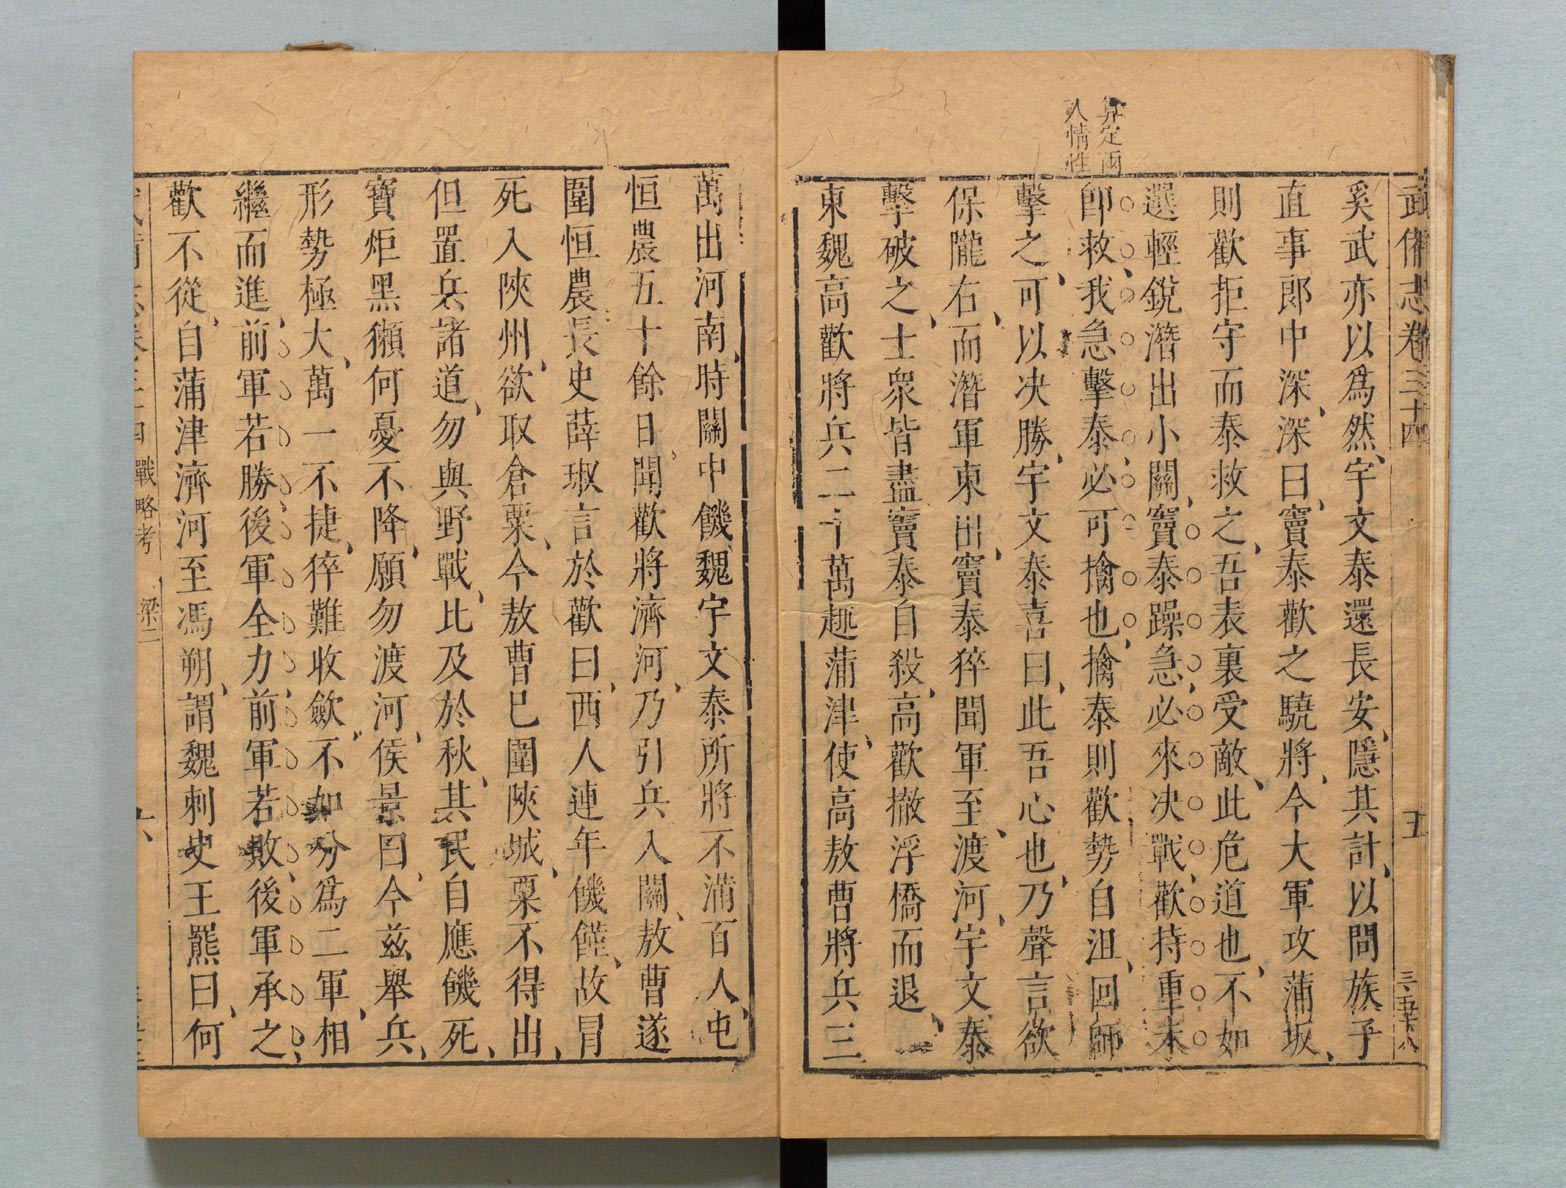 武備志卷三十四
五
奚武亦以爲然、宇文泰還長安、隱其計、以問族子
直事郎中深、深曰、竇泰歡之驍將、今大軍攻蒲坂、
則歡拒守而泰救之、吾表裏受敵、此危道也、不如
選輕銳潛出小關、竇泰躁急、必來决戰、歡持重未
卽救、我急擊泰、必可擒也、擒泰則歡勢自沮、回師
擊之、可以决勝、宇文泰喜曰、此吾心也、乃聲言欲
保隴右、而潛軍東出、竇泰猝聞軍至、渡河、宇文泰
擊破之、士衆皆盡、竇泰自殺、高歡撤浮橋而退、
東魏高歡將兵二十萬趣蒲津、使高敖曹將兵三
算定兩
人情性
萬出河南、時關中饑、魏宇文泰所將不滿百人、屯
恒農五十餘日、聞歡將濟河、乃引兵入關、敖曹遂
圍恒農、長史薛琡言於歡曰、西人連年饑饉、故冒
死入陝州、欲取倉粟、今敖曹已圍陝城、粟不得出、
但置兵諸道、勿與野戰、比及於秋、其民自應饑死、
寶炬黑獺何憂不降、願勿渡河、侯景曰、今茲舉兵、
形勢極大、萬一不捷、猝難收斂、不如分爲二軍、相
繼而進、前軍若勝、後軍全力、前軍若敗、後軍承之、
歡不從、自蒲津濟河至馮朔、謂魏刺史王羆曰、何
戰略考 梁二
六